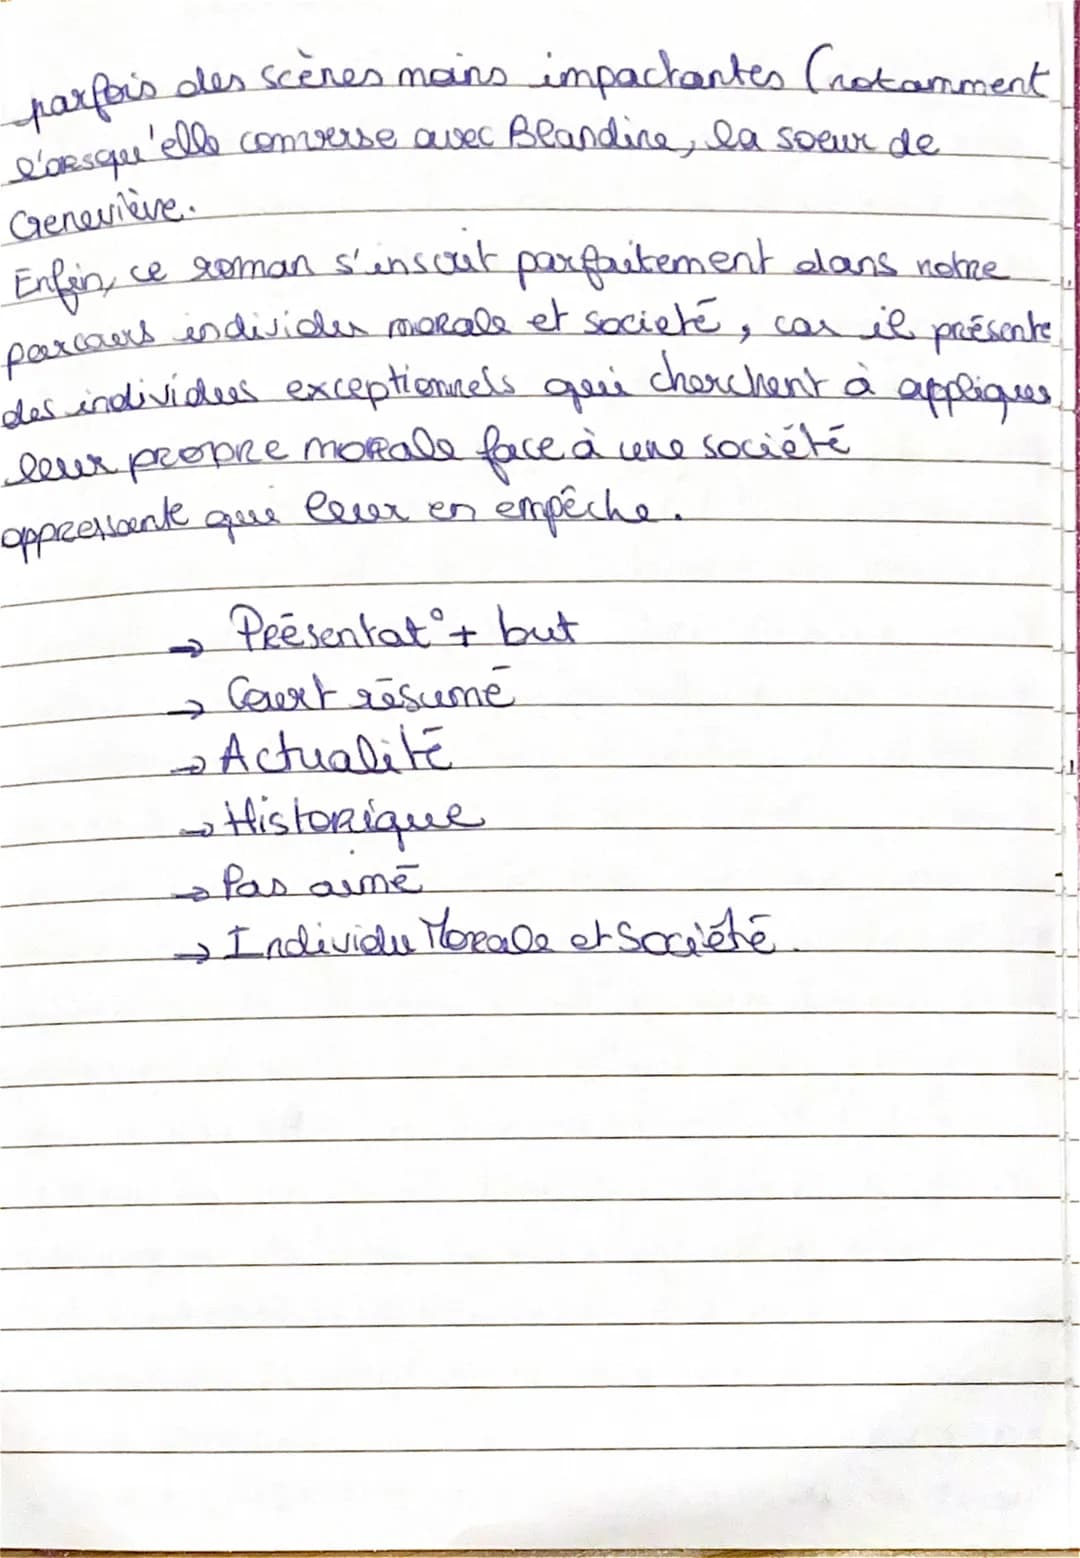 parfois des scènes moins impactantes (notamment
l'orsqu'elle converse avec Blandine, la soeur de
Geneviève.
Enfin, ce roman s'inscrit parfaitement dans notre
parcours individu morale et societé, car il présente
des individues exceptionnels qui cherchent à appliquer
leur propre morale face à une société
oppressante qui leur en empêche.
→ Présentat° + but
→ Court résumé
→ Actualité
→ Historique
→ Pas aimé
→ Individu Morale et Société.